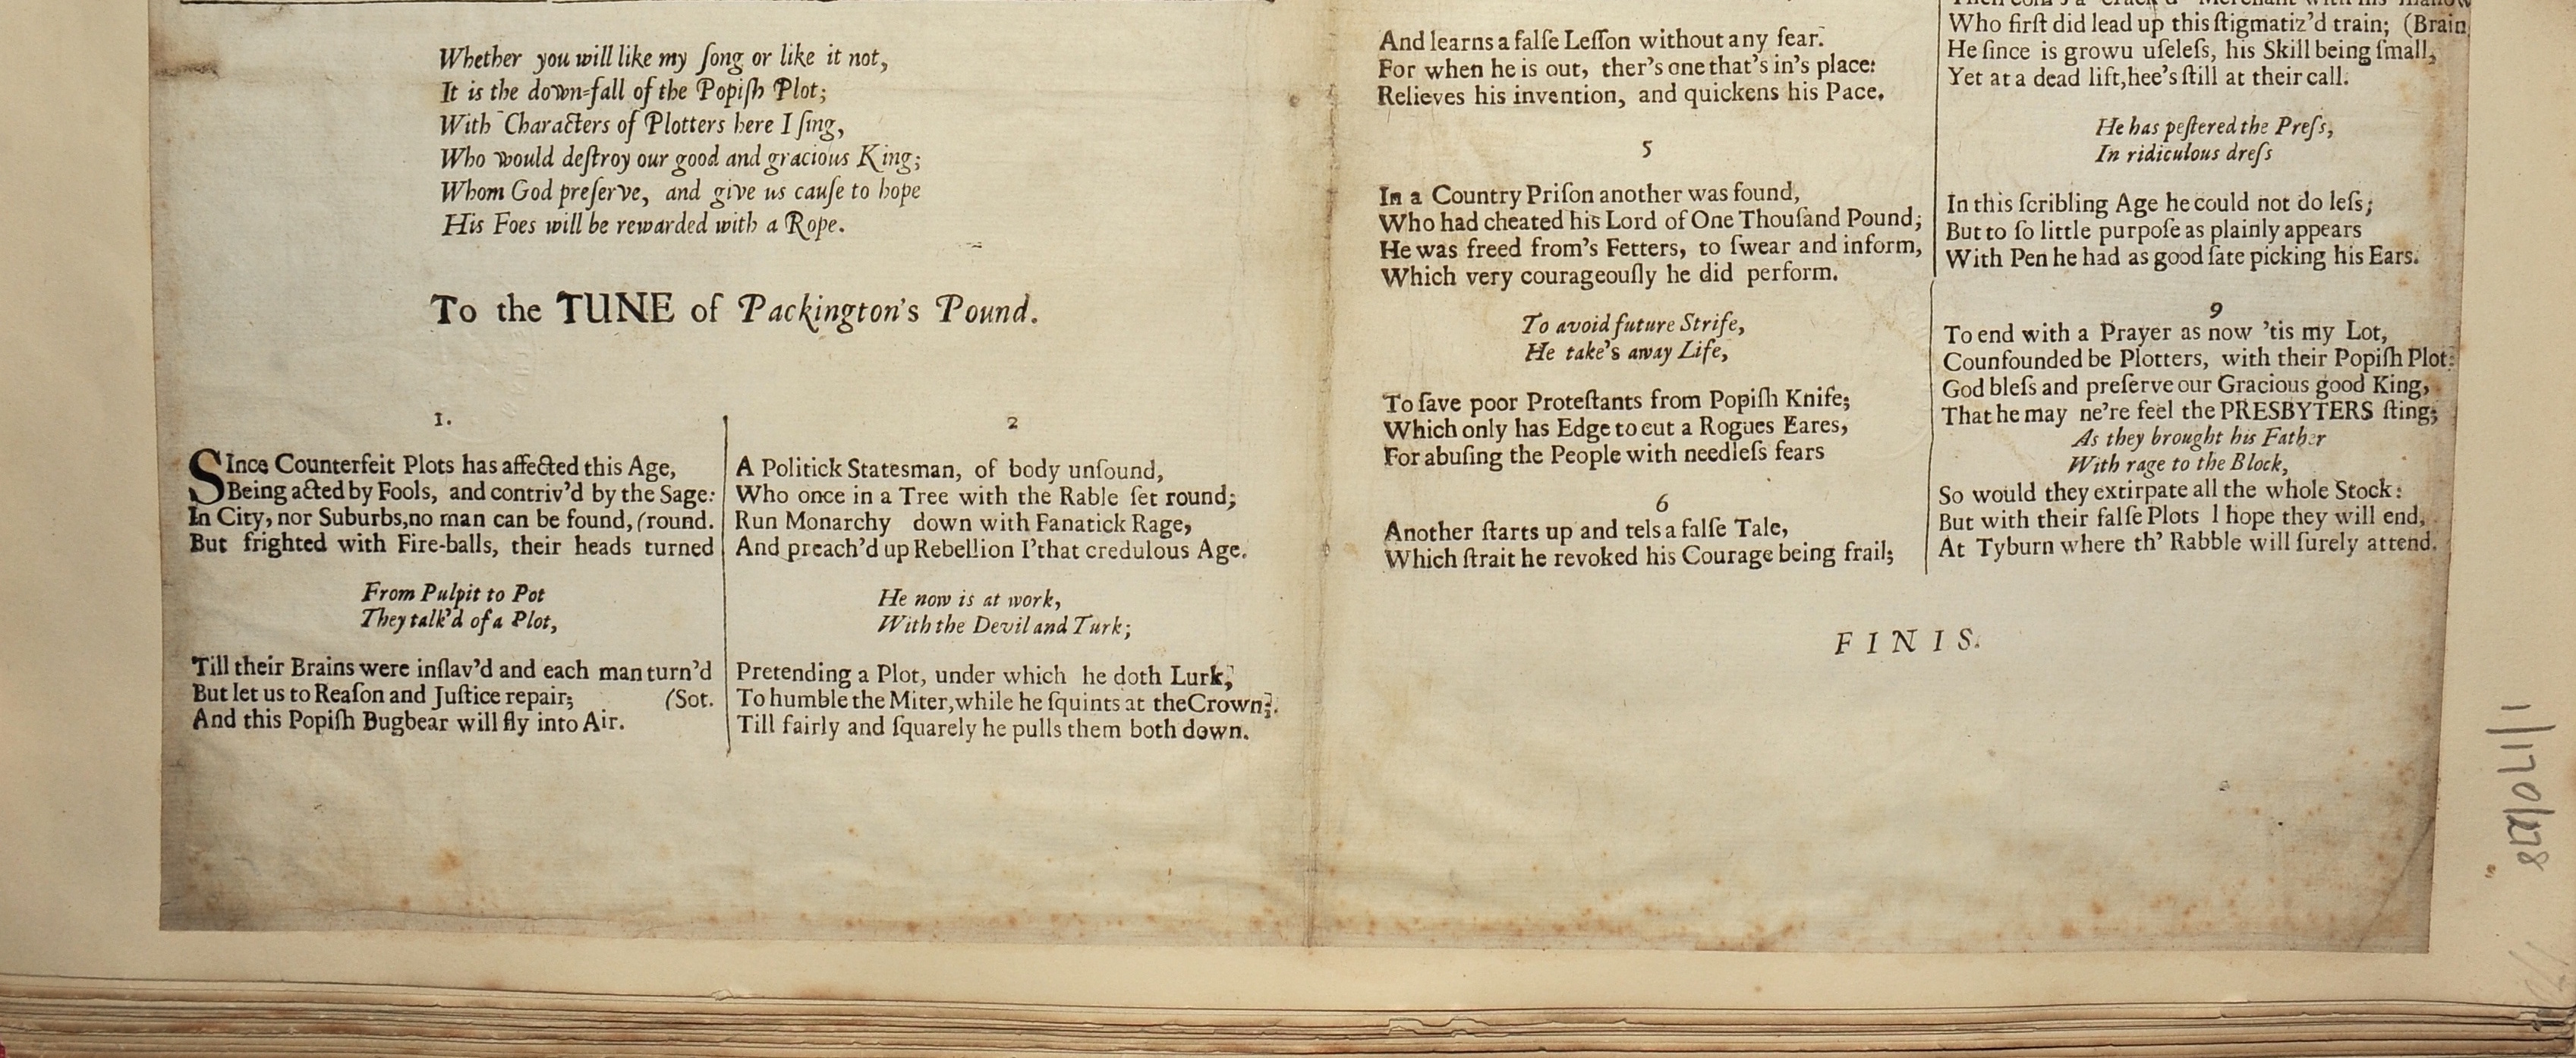 Whether you will like my ſong or like it not,
It is the down-fall of the Popiſh Plot;
With Characters of Plotters here I ſing,
Who would deſtroy our good and gracious King;
Whom God preſerve, and give us cauſe to hope
His Foes will be rewarded with a Rope.
To the TUNE of Packington's Pound.
1.
SInce Counterfeit Plots has affected this Age,
Being acted by Fools, and contriv'd by the Sage:
In City, nor Suburbs, no man can be found, (round.
But frighted with Fire-balls, their heads turned
From Pulpit to Pot
They talk'd of a Plot,
Till their Brains were inſlav'd and each man turn'd
But let us to Reaſon and Juſtice repair; (Sot.
And this Popiſh Bugbear will fly into Air.
2
A Politick Statesman, of body unſound,
Who once in a Tree with the Rable ſet round;
Run Monarchy down with Fanatick Rage,
And preach'd up Rebellion I'that credulous Age.
He now is at work,
With the Devil and Turk;
Pretending a Plot, under which he doth Lurk,
To humble the Miter, while he ſquints at the Crown;
Till fairly and ſquarely he pulls them both down.
And learns a falſe Leſſon without any fear.
For when he is out, ther's one that's in's place:
Relieves his invention, and quickens his Pace.
5
In a Country Priſon another was found,
Who had cheated his Lord of One Thouſand Pound;
He was freed from's Fetters, to ſwear and inform,
Which very courageouſly he did perform.
To avoid future Strife,
He take's away Life,
To ſave poor Proteſtants from Popiſh Knife;
Which only has Edge to cut a Rogues Eares,
For abuſing the People with needleſs fears
6
Another ſtarts up and tels a falſe Tale,
Which ſtrait he revoked his Courage being frail;
Then com's a crack'd Merchant with his ſhallow
Who firſt did lead up this ſtigmatiz'd train; (Brain
He ſince is growu uſeleſs, his Skill being ſmall,
Yet at a dead lift, hee's ſtill at their call.
He has peſtered the Preſs,
In ridiculous dreſs
In this ſcribling Age he could not do leſs;
But to ſo little purpoſe as plainly appears
With Pen he had as good ſate picking his Ears.
9
To end with a Prayer as now 'tis my Lot,
Counfounded be Plotters, with their Popiſh Plot:
God bleſs and preſerve our Gracious good King,
That he may ne're feel the PRESBYTERS ſting;
As they brought his Father
With rage to the Block,
So would they extirpate all the whole Stock:
But with their falſe Plots I hope they will end,
At Tyburn where th' Rabble will ſurely attend.
FINIS.